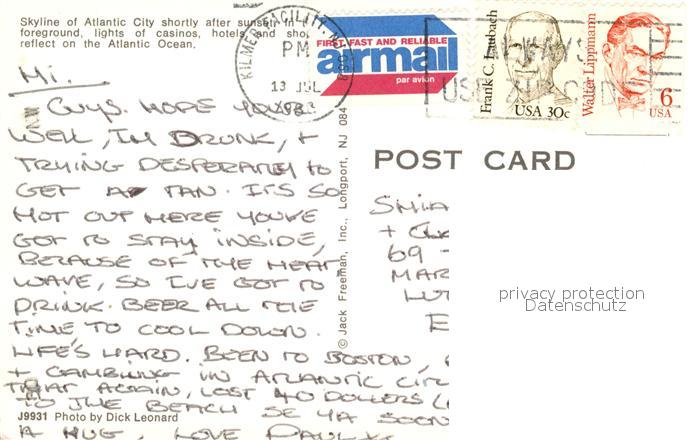 Skyline of Atlantic City shortly after sunset.
foreground, lights of casinos, hotels and sho
reflect on the Atlantic Ocean.
KILMER FACILITY, NJ
PM
13 JUL
088
FIRST, FAST AND RELIABLE
airmail
par avion
ALWAYS
USE ZIP CODE
Frank C. Laubach
USA 30c
Walter Lippmann
6
USA
Hi.
GUYS. HOPE YOU'RE
WELL, I'M DRUNK, +
TRYING DESPERATELY to
GET A TAN. IT'S SO
HOT OUT HERE YOU'VE
GOT TO STAY INSIDE,
BECAUSE OF THE HEAT
WAVE, SO I'VE GOT TO
DRINK BEER ALL THE
TIME TO COOL DOWN.
LIFE'S HARD. BEEN TO BOSTON,
+ GAMBLING IN ATLANTIC CIT
THAT AGAIN, LOST 40 DOLLERS
TO THE BEACH SE YA SOON
A HUG, LOVE PAUL
© Jack Freeman, Inc., Longport, NJ 084
POST CARD
+
69
MAR
LUT
E
privacy protection
Datenschutz
J9931 Photo by Dick Leonard